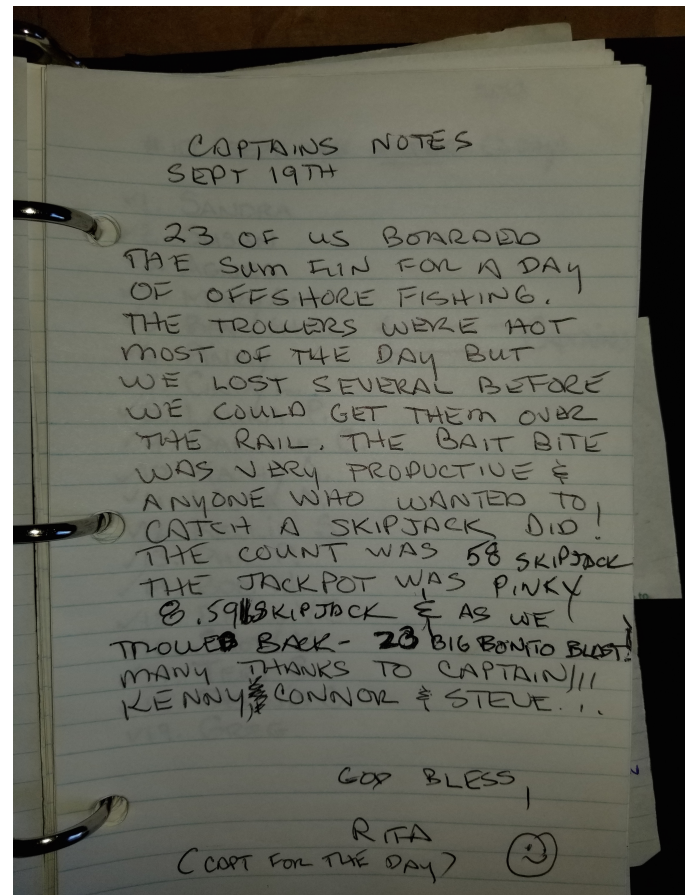 CAPTAINS NOTES
SEPT 19TH
23 OF US BOARDED
THE SUM FUN FOR A DAY
OF OFFSHORE FISHING.
THE TROLLERS WERE HOT
MOST OF THE DAY BUT
WE LOST SEVERAL BEFORE
WE COULD GET THEM OVER
THE RAIL. THE BAIT BITE
WAS VERY PRODUCTIVE &
ANYONE WHO WANTED TO
CATCH A SKIPJACK DID!
THE COUNT WAS 58 SKIPJACK
THE JACKPOT WAS PINKY
8.59 SKIPJACK & AS WE
TROLLED BACK - 23 BIG BONITO BLAST!
MANY THANKS TO CAPTAIN!!!
KENNY & CONNOR & STEVE...
GOD BLESS,
RITA
(CAPT FOR THE DAY)